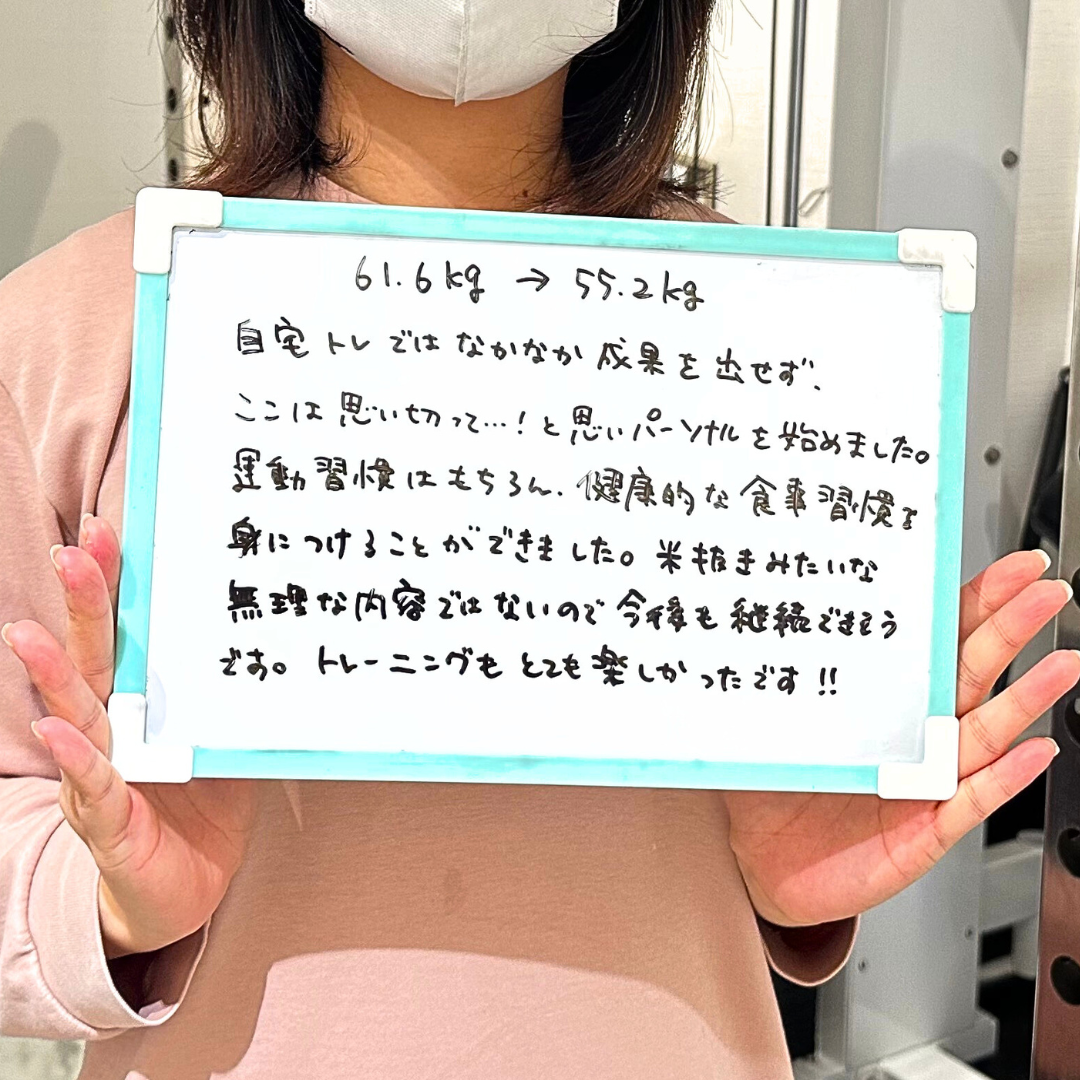 61.6kg → 55.2kg
自宅トレではなかなか成果を出せず、
ここは思い切って…!と思いパーソナルを始めました。
運動習慣はもちろん、健康的な食事習慣を
身につけることができました。米抜きみたいな
無理な内容ではないので今後も継続できそう
です。トレーニングもとても楽しかったです!!